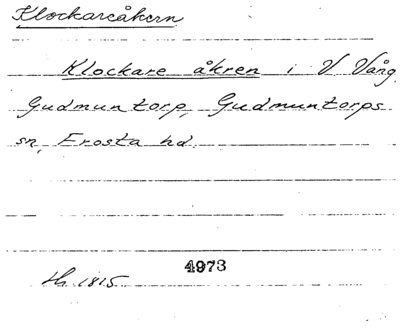 Klockareåkern
Klockare åkren i V Vång,
Gudmuntorp, Gudmuntorps
sn, Frosta hd
4973
Hs. 1815